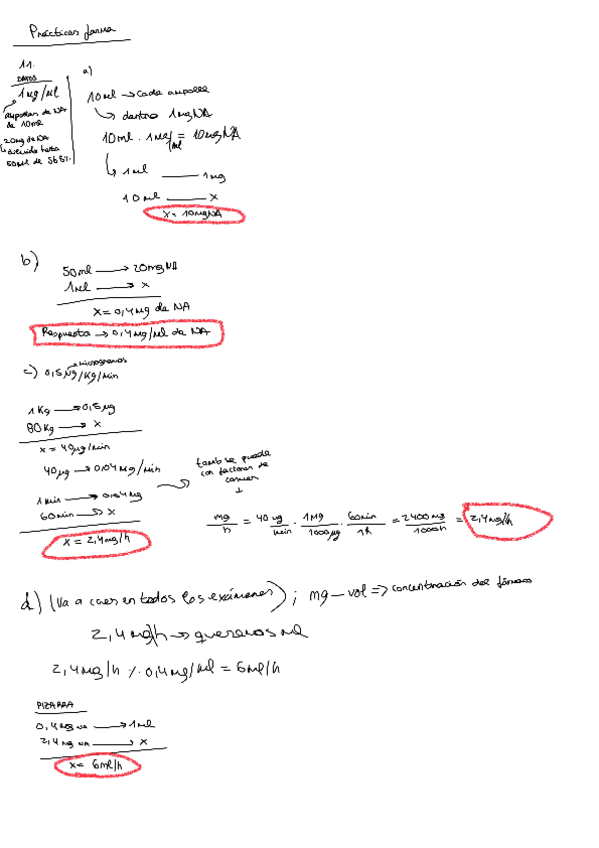 Prácticas farma
11.
DATOS
1 mg/ml
ampollas de NA
de 10ml
20mg de NA
50ml de SG5%.
a)
10ml → cada ampolla
↳ dentro 1mg NA
10ml · 1mg/1ml = 10mg NA
↳ 1ml —— 1mg
10ml —— x
x = 10mg NA
b)
50ml → 20mg NA
1ml → x
x = 0,4mg de NA
Respuesta → 0,4mg/ml de NA
→ microgramos
c) 0,5µg/kg/min
1kg → 0,5µg
80kg → x
x = 40µg/min
40µg → 0,04mg/min
1min → 0,04mg
60min → x
x = 2,4mg/h
tamb se puede
con factores de
↓
mg/h = 40 ug/min · 1mg/1000µg · 60min/1h = 2400mg/1000h = 2,4mg/h
d) (Va a caer en todos los exámenes) ; mg — vol => concentración del fármaco
2,4mg/h → queremos ml
2,4mg/h % 0,4mg/ml = 6ml/h
PIZARRA
0,4mg NA → 1ml
2,4mg NA → x
x = 6ml/h